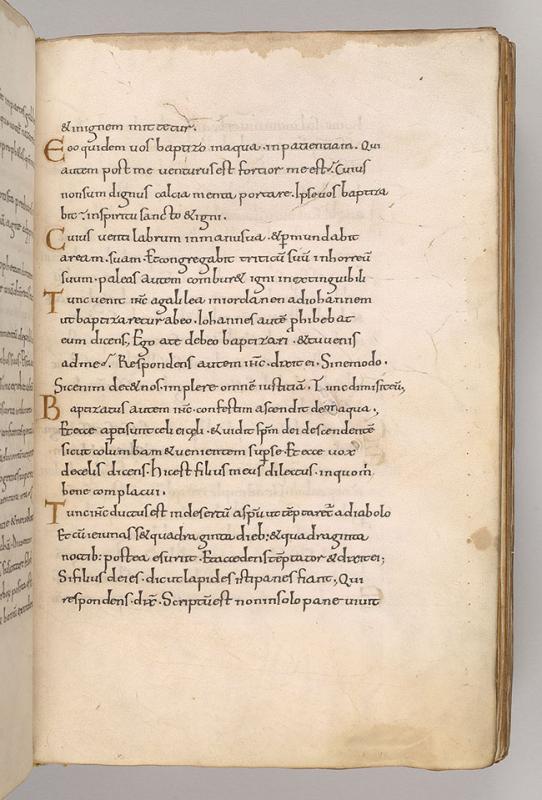 & inignem mittetur.
Eoo quidem uos baptizo inaqua inpatientiam. Qui
autem post me venturus est fortior me est. Cuius
nonsum dignus calcia menta portare. Ipse uos baptiza
bit inspiritu sancto & igni.
Cuius ventilabrum inmanu sua. & p mundabit
aream. suam. Et congregabit triticū suū inhorreū
suum. paleas autem combur& igni inextinguibili
Tunc venit ihc agalilea iniordanen adiohannem
ut baptizaretur abeo. Iohannes autē phibebat
eum dicens, Ego ate debeo baptizari. & tu venis
adme. Respondens autem ihc. dixit ei. Sine modo.
Sic enim dec& nos. inplere omnē iustitiā. Tunc dimisit eū,
Baptizatus autem ihc. confestim ascendit de aqua.
Et ecce apti sunt celi & uidit spm dei descendentē
sicut columbam & venientem supse. Et ecce uox
decelis dicens. hic est filius meus dilectus. inquo m
bene complacui.
Tunc ihc ductus est indesertū aspu ut tēptaret adiabolo
Et cū ieiunass& quadra ginta dieb; & quadraginta
noctib: postea esuriit. Et accedens tēptator & dixit ei;
Si filius dei es. dic ut lapides isti panes fiant, Qui
respondens. dix. Scriptū est non insolo pane uiuit